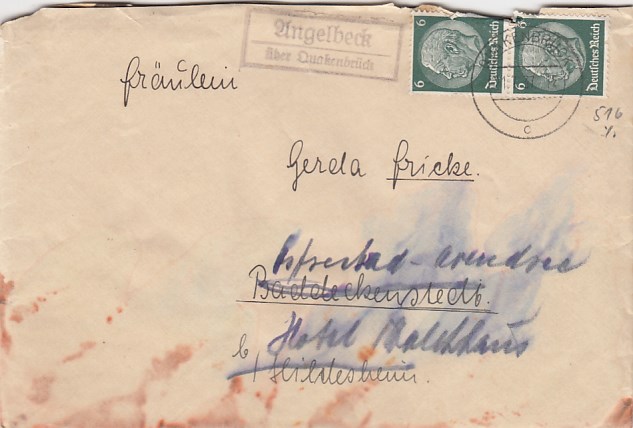 Angelbeck
über Quakenbrück
6
Deutsches Reich
6
Deutsches Reich
c
516
Fräulein
Gerda Fricke.
Ostseebad - Arendsee
Baddeckenstedt.
Hotel Waldhaus
b/ Hildesheim.